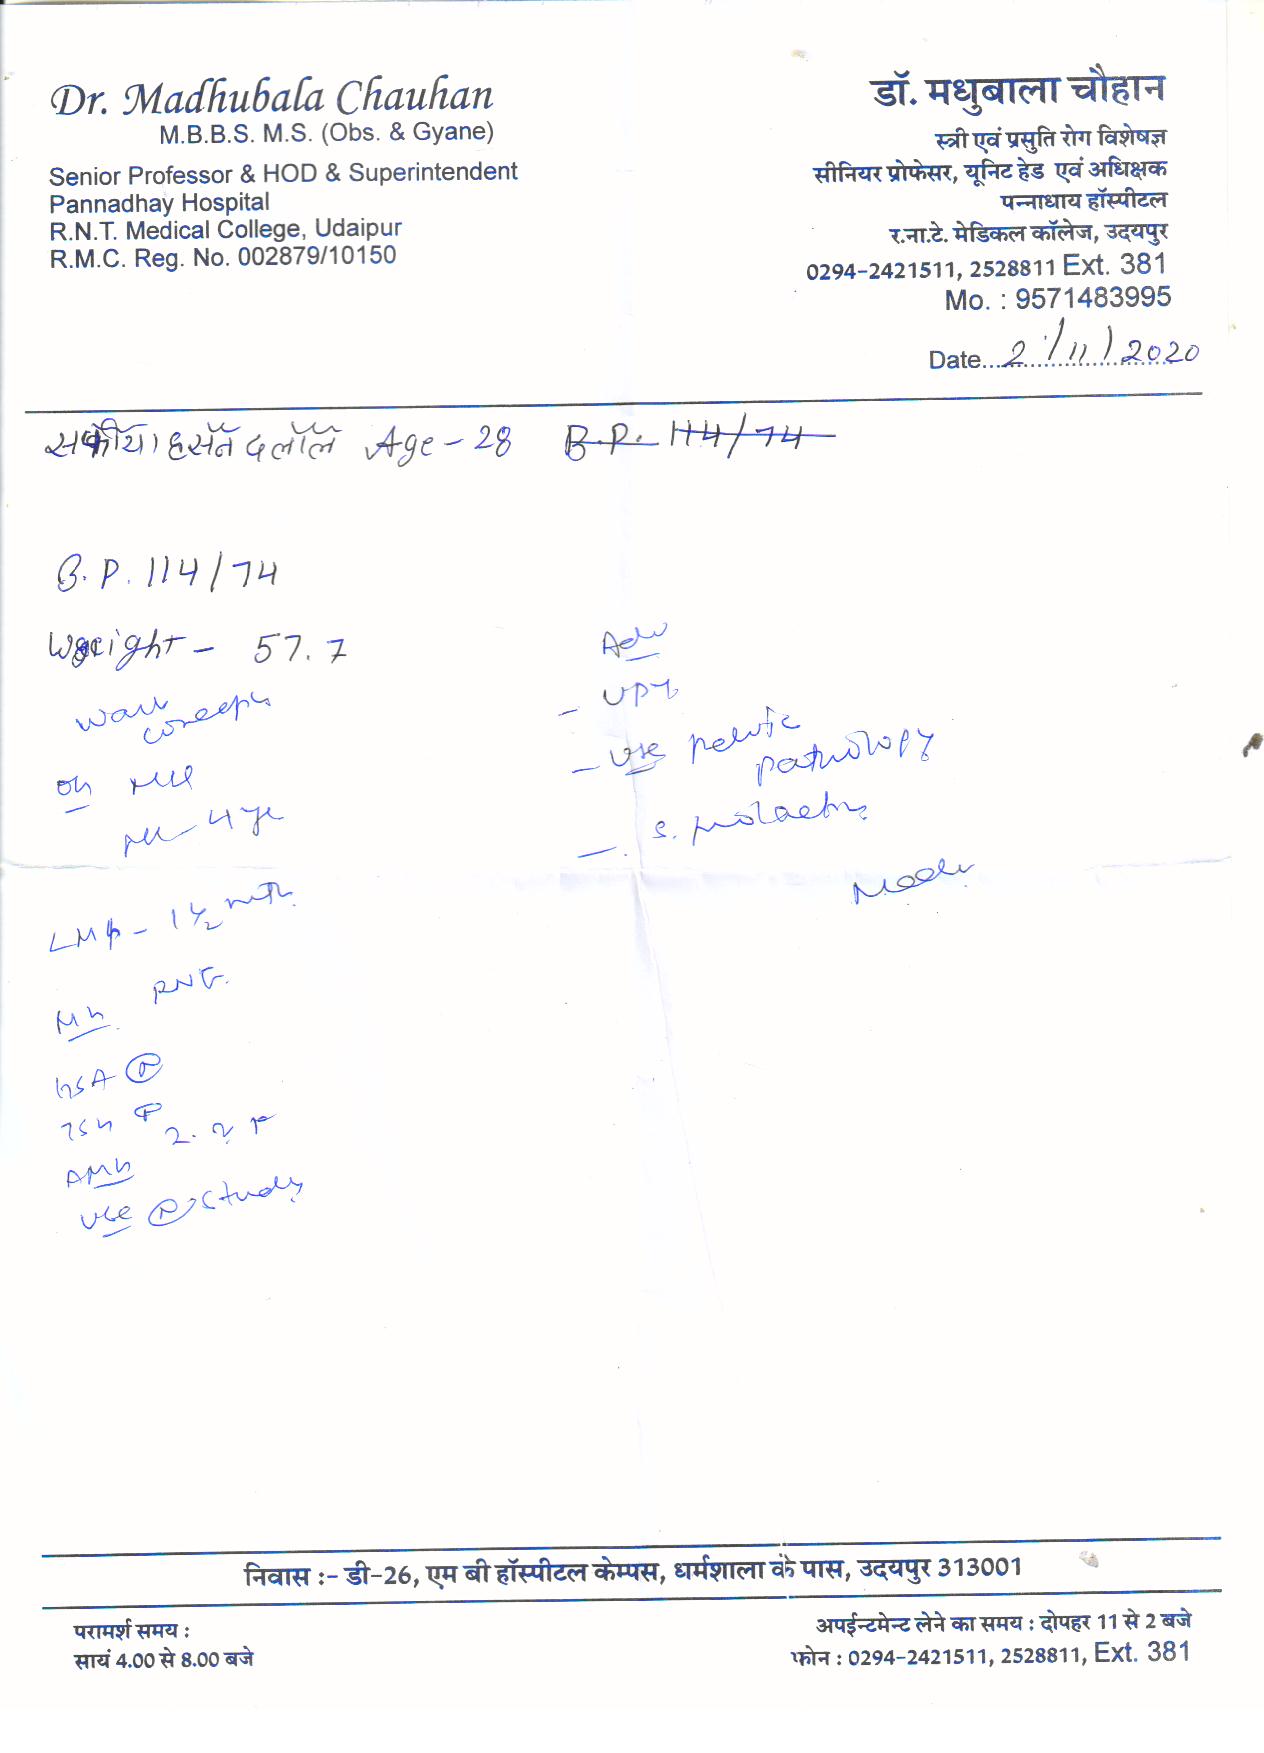 Dr. Madhubala Chauhan
M.B.B.S. M.S. (Obs. & Gyane)
Senior Professor & HOD & Superintendent
Pannadhay Hospital
R.N.T. Medical College, Udaipur
R.M.C. Reg. No. 002879/10150
डॉ. मधुबाला चौहान
स्त्री एवं प्रसुति रोग विशेषज्ञ
सीनियर प्रोफेसर, यूनिट हेड एवं अधिक्षक
पन्नाधाय हॉस्पीटल
र.ना.टे. मेडिकल कॉलेज, उदयपुर
0294-2421511, 2528811 Ext. 381
Mo. : 9571483995
Date 2 /11/2020
Age - 28 B.P. 114/74
B.P. 114/74
Weight - 57.7
want
conceive
OH
4 yr
LMP - 1 1/2 mth
MH
HSA (N)
TSH
AMH 2.2
USG (N) study
Adv
- UPT
- USG pelvic
pathology
- S. prolactin
निवास :- डी-26, एम बी हॉस्पीटल केम्पस, धर्मशाला के पास, उदयपुर 313001
परामर्श समय :
सायं 4.00 से 8.00 बजे
अपईन्टमेन्ट लेने का समय : दोपहर 11 से 2 बजे
फोन : 0294-2421511, 2528811, Ext. 381